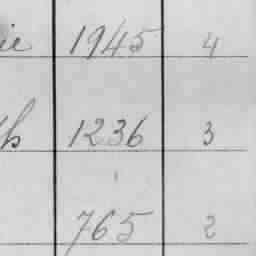 1945 4
1236 3
765 2